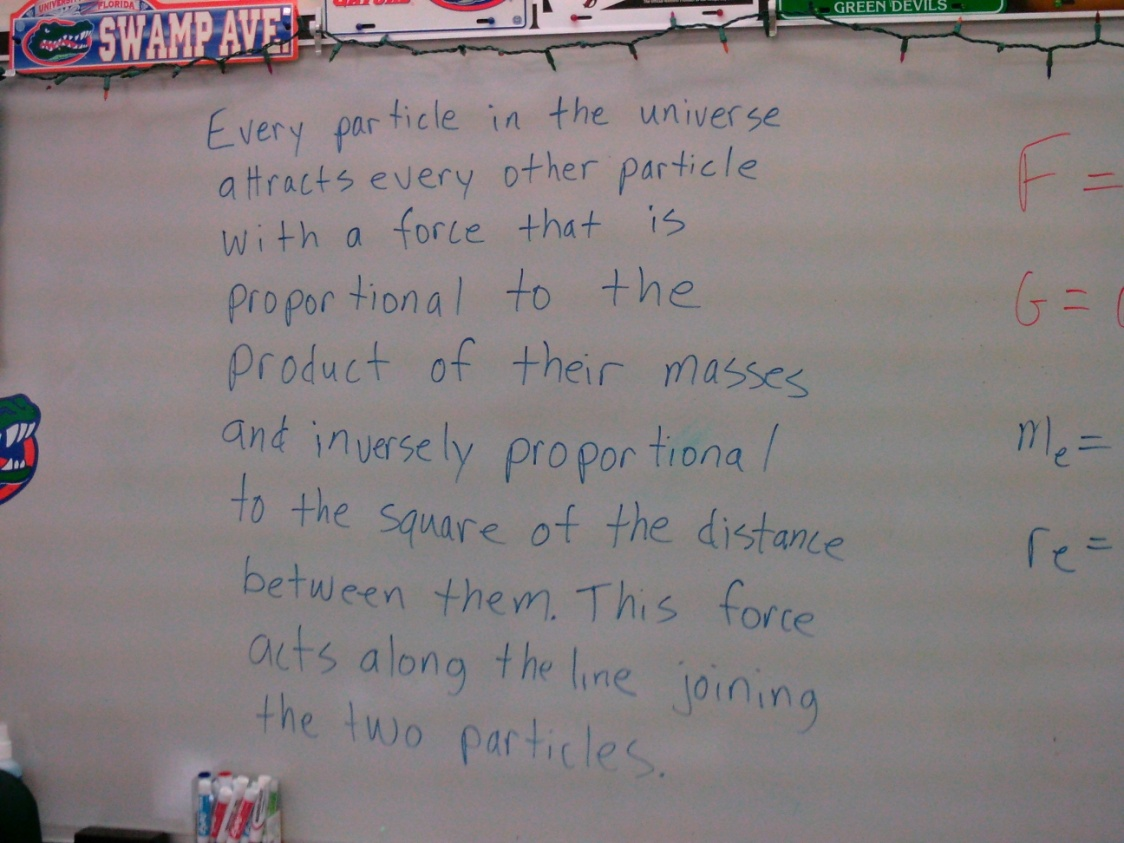 UNIVERSITY FLORIDA
SWAMP AVE.
GREEN DEVILS
Every particle in the universe
attracts every other particle
with a force that is
proportional to the
product of their masses
and inversely proportional
to the square of the distance
between them. This force
acts along the line joining
the two particles.
F =
G =
me =
re =